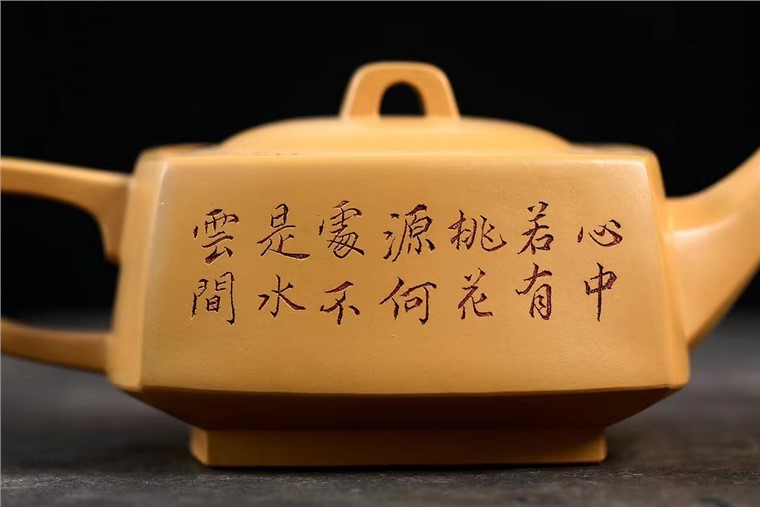 心中
若有
桃花
源何
處不
是水
雲間